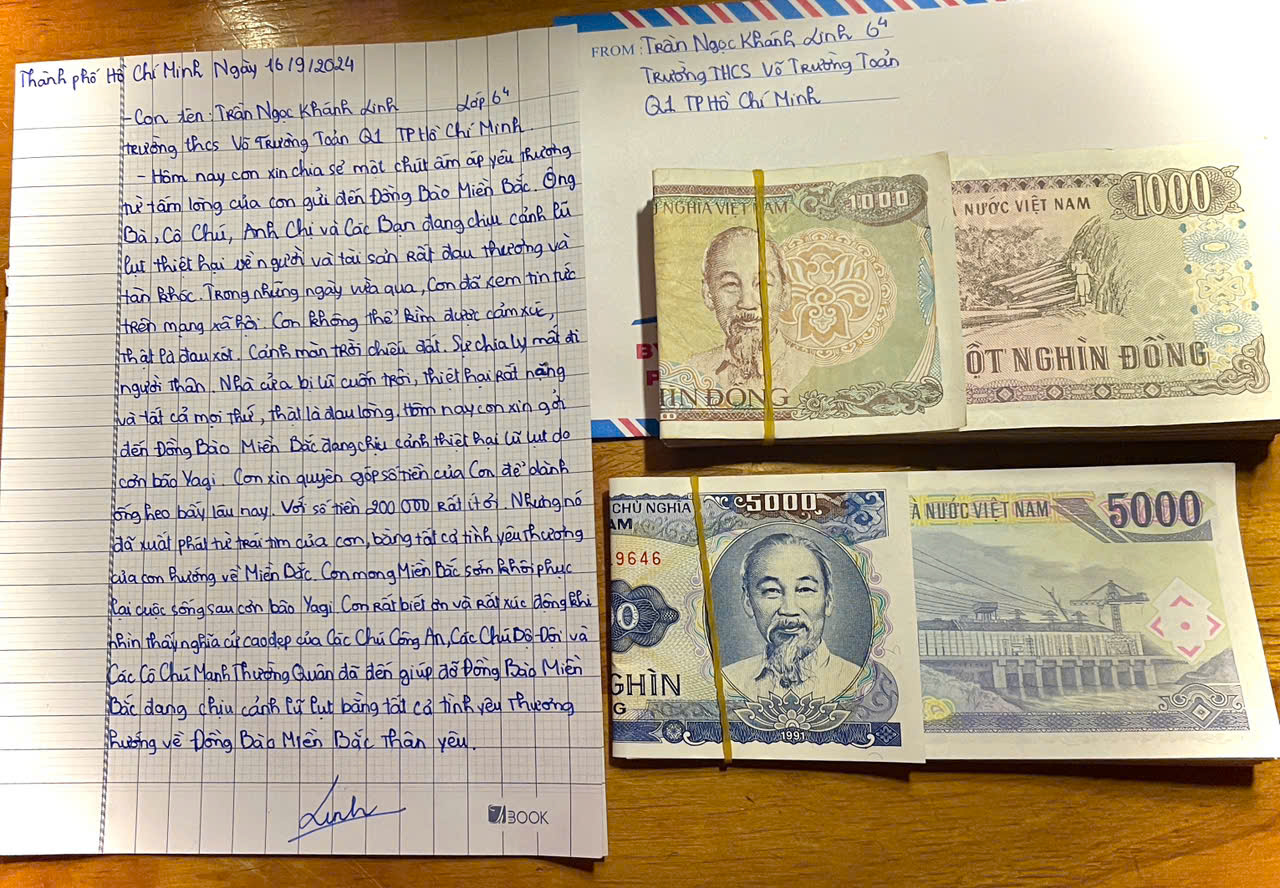 Thành phố Hồ Chí Minh Ngày 16/9/2024
- Con tên: Trần Ngọc Khánh Linh Lớp 6⁴
trường thcs Võ Trường Toản Q1 TP Hồ Chí Minh.
- Hôm nay con xin chia sẻ một chút ấm áp yêu thương
từ tấm lòng của con gửi đến Đồng Bào Miền Bắc. Ông
Bà, Cô Chú, Anh Chị và Các Bạn đang chịu cảnh lũ
lụt thiệt hại về người và tài sản Rất đau thương và
tàn khốc. Trong những ngày vừa qua, Con đã xem tin tức
trên mạng xã hội. Con không thể kìm được cảm xúc,
thật là đau xót. Cảnh màn trời chiếu đất. Sự chia ly mất đi
người thân. Nhà cửa bị lũ cuốn trôi, thiệt hại Rất nặng
và tất cả mọi thứ, thật là đau lòng. Hôm nay con xin gởi
đến Đồng Bào Miền Bắc đang chịu cảnh thiệt hại lũ lụt do
cơn bão Yagi. Con xin quyên góp số tiền của Con để dành
ống heo bấy lâu nay. Với số tiền 200 000 Rất ít ỏi. Nhưng nó
đã xuất phát từ trái tim của con, bằng tất cả tình yêu thương
của con hướng về Miền Bắc. Con mong Miền Bắc sớm khôi phục
lại cuộc sống sau cơn bão Yagi. Con Rất biết ơn và rất xúc động khi
nhìn thấy nghĩa cử cao đẹp của Các Chú Công An, Các Chú Bộ Đội và
Các Cô Chú Mạnh Thường Quân đã đến giúp đỡ Đồng Bào Miền
Bắc đang chịu cảnh lũ lụt bằng tất cả tình yêu Thương
hướng về Đồng Bào Miền Bắc Thân yêu.
Linh
BOOK
FROM: Trần Ngọc Khánh Linh 6⁴
Trường THCS Võ Trường Toản
Q1 TP Hồ Chí Minh
NGHĨA VIỆT NAM
1000
NƯỚC VIỆT NAM
1000
ÌN ĐỒNG
ỘT NGHÌN ĐỒNG
CHỦ NGHĨA
AM
5000
9646
0
GHÌN
G
1991
A NƯỚC VIỆT NAM
5000